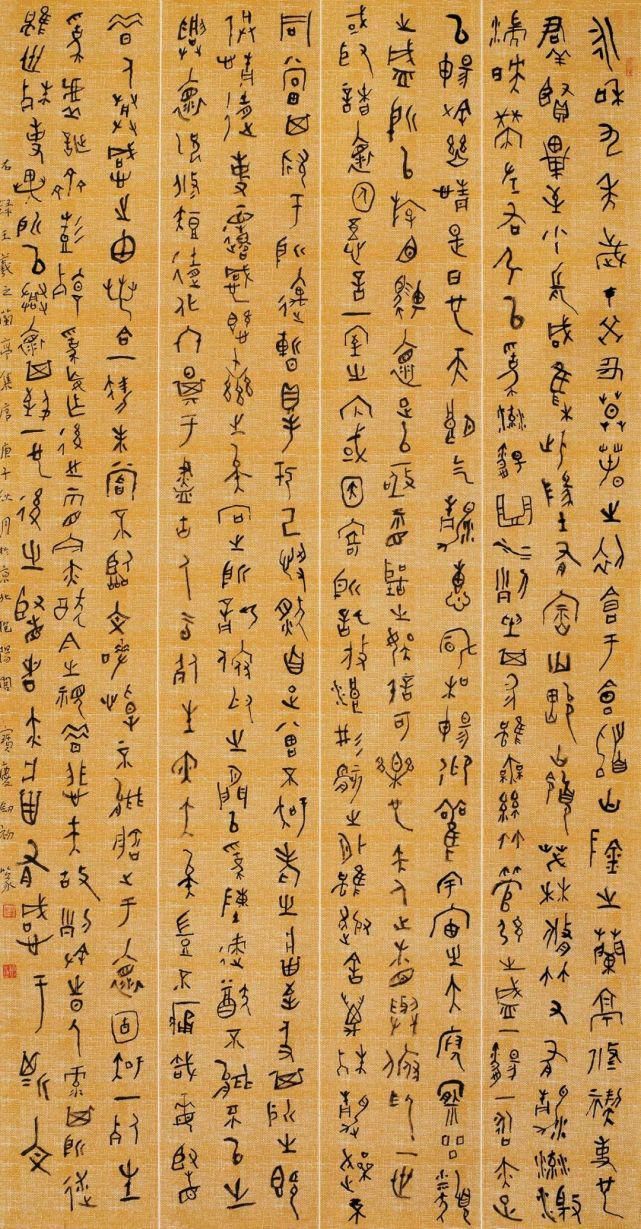 永和九年歲在癸丑暮春之初會于會稽山陰之蘭亭修禊事也
群賢畢至少長咸集此地有崇山峻嶺茂林修竹又有清流激
湍映帶左右引以為流觴曲水列坐其次雖無絲竹管弦之盛一觴一詠亦足
以暢敘幽情是日也天朗氣清惠風和暢仰觀宇宙之大俯察品類
之盛所以遊目騁懷足以極視聽之娛信可樂也夫人之相與俯仰一世
或取諸懷抱悟言一室之內或因寄所託放浪形骸之外雖趣舍萬殊靜躁不
同當其欣于所遇暫得於己快然自足曾不知老之將至及其所之既
倦情隨事遷感慨係之矣向之所欣俯仰之間以為陳迹猶不能不以之
興懷況修短隨化終期于盡古人云死生亦大矣豈不痛哉每覽
昔人興感之由若合一契未嘗不臨文嗟悼不能喻之于懷固知一死生
為虛誕齊彭殤為妄作後之視今亦由今之視昔悲夫故列敘時人錄其所述
雖世殊事異所以興懷其致一也後之覽者亦將有感于斯文
右錄王羲之蘭亭集序庚子秋月於京北 寶慶 篆